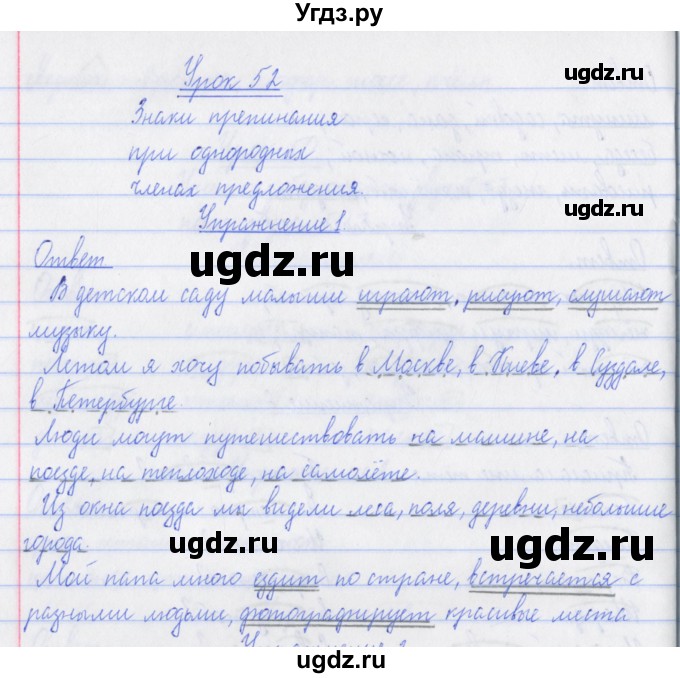 Угдз.ру
Урок 52
Знаки препинания
при однородных
членах предложения.
Упражнение 1.
Ответ
В детском саду малыши играют, рисуют, слушают
музыку.
Летом я хочу побывать в Москве, в Киеве, в Суздале,
в Петербурге.
Люди могут путешествовать на машине, на
поезде, на теплоходе, на самолёте.
Из окна поезда мы видели леса, поля, деревни, небольшие
города.
Мой папа много ездит по стране, встречается с
разными людьми, фотографирует красивые места
ugdz.ru
ugdz.ru
ugdz.ru
ugdz.ru
ugdz.ru
ugdz.ru
ugdz.ru
ugdz.ru
ugdz.ru